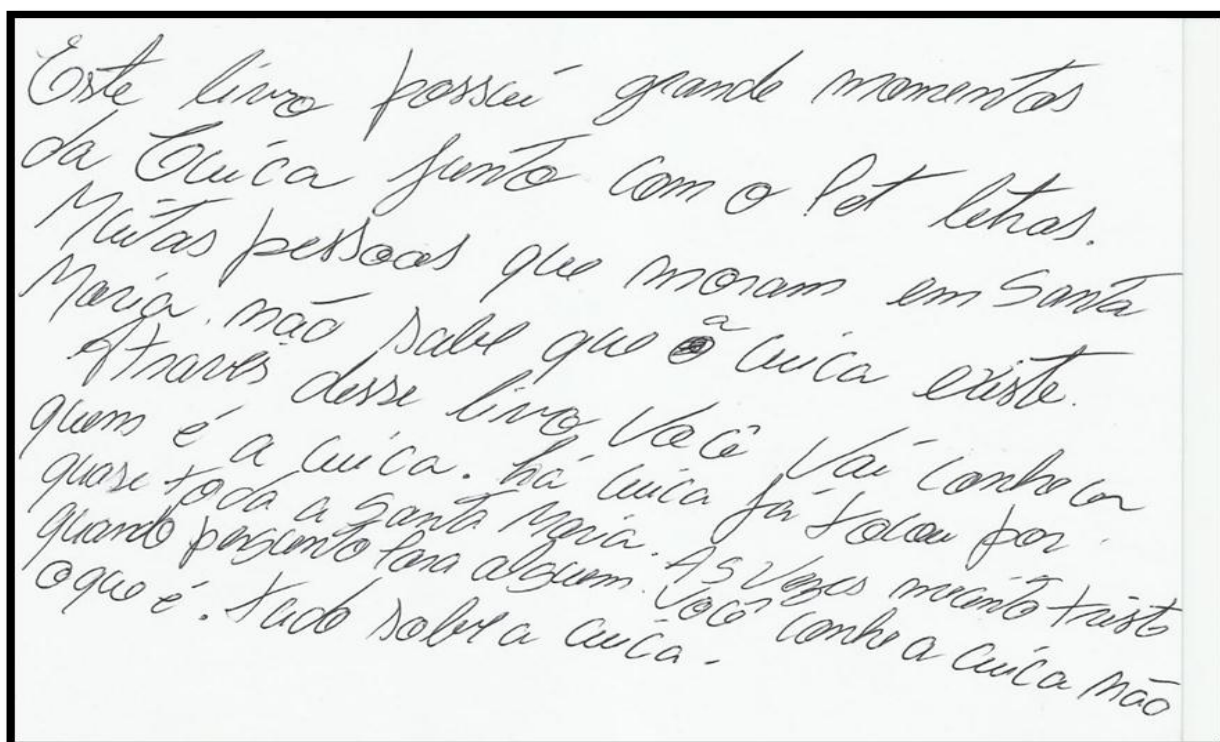 Este livro possui grande momentos
da Cuica junto com o Pet letras.
Muitas pessoas que moram em Santa
Maria não sabe que a cuica existe.
Através desse livro Você Vai conhecer
quem é a cuica. há cuica já tocou por
quase toda a Santa Maria. As Vezes me sinto triste
quando pergunto para alguem. Você conhe a cuica não
o que é. tudo sobre a cuica.